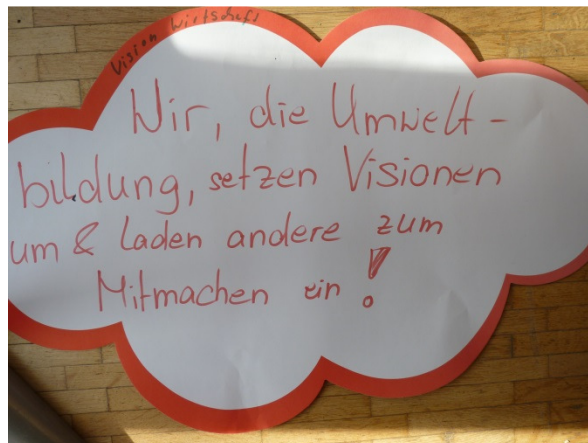 Vision Wirtschaft
Wir, die Umwelt-
bildung, setzen Visionen
um & laden andere zum
Mitmachen ein!